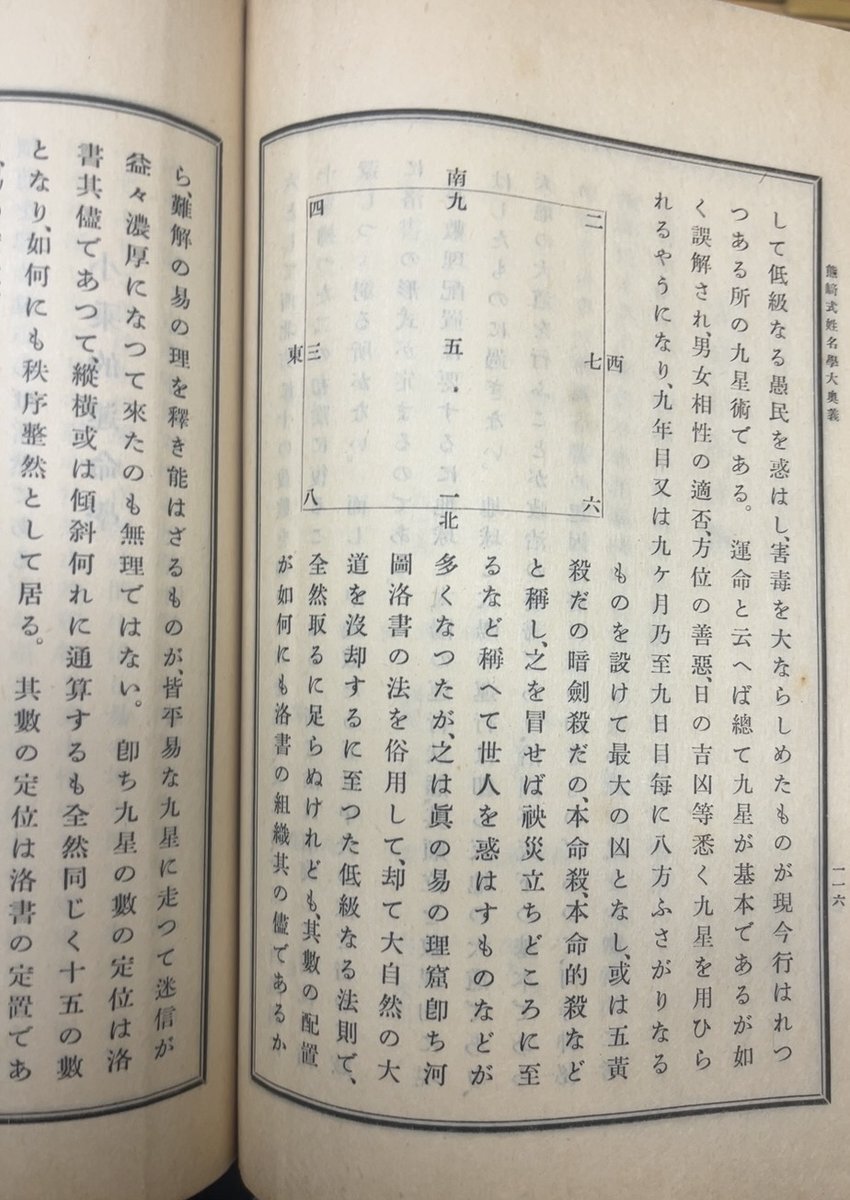 熊﨑式姓名學大奧義
一一六
して低級なる愚民を惑はし、害毒を大ならしめたものが現今行はれつ
つある所の九星術である。運命と云へば總て九星が基本であるが如
く誤解され、男女相性の適否、方位の善惡、日の吉凶等悉く九星を用ひら
れるやうになり、九年目又は九ケ月乃至九日目每に八方ふさがりなる
ものを設けて最大の凶となし、或は五黄
殺だの暗劍殺だの、本命殺、本命的殺など
と稱し、之を冒せば殃災立ちどころに至
るなど稱へて世人を惑はすものなどが
多くなつたが、之は眞の易の理窟卽ち河
圖洛書の法を俗用して、却て大自然の大
道を沒却するに至つた低級なる法則で、
全然取るに足らぬけれども、其數の配置
が如何にも洛書の組織其の儘であるか
二
七
西
六
南
九
數理配置
五
一
北
四
三
東
八
ら、難解の易の理を釋き能はざるものが、皆平易な九星に走つて迷信が
益々濃厚になつて來たのも無理ではない。卽ち九星の數の定位は洛
書其儘であつて、縱橫或は傾斜何れに通算するも全然同じく十五の數
となり、如何にも秩序整然として居る。其數の定位は洛書の定置であ